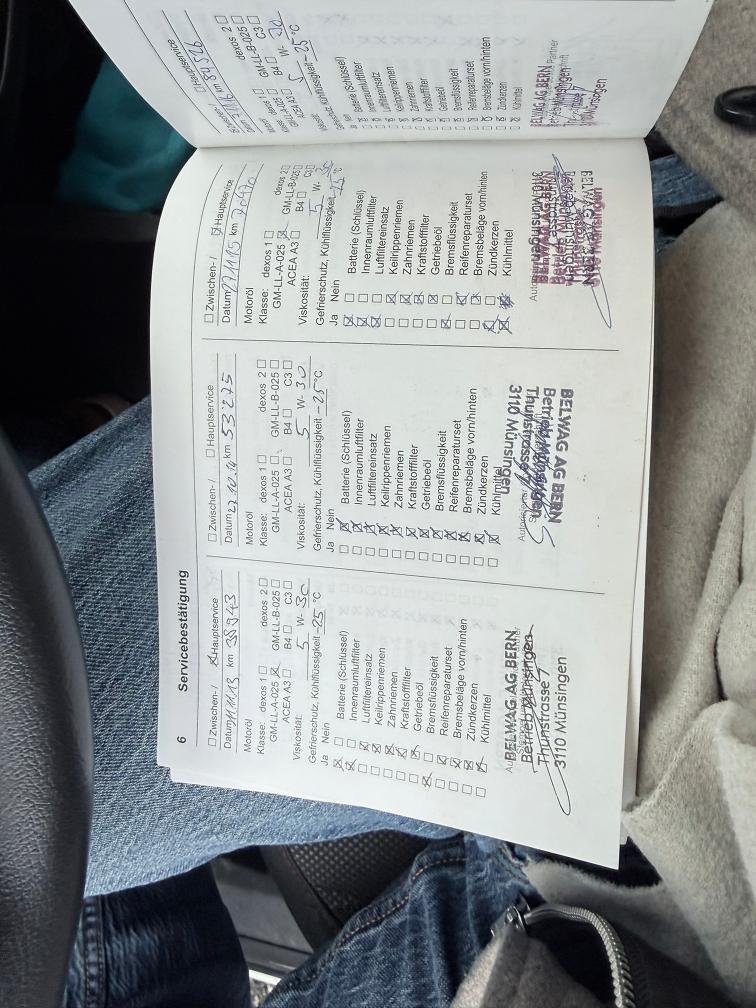 6
Servicebestätigung
Zwischen- / Hauptservice
Datum 11.11.13 km 38943
Motoröl
Klasse: dexos 1 dexos 2
GM-LL-A-025 GM-LL-B-025
ACEA A3 B4 C3
Viskosität: 5 W- 30
Gefrierschutz, Kühlflüssigkeit -25 °C
Ja Nein
Batterie (Schlüssel)
Innenraumluftfilter
Luftfiltereinsatz
Keilrippenriemen
Zahnriemen
Kraftstofffilter
Getriebeöl
Bremsflüssigkeit
Reifenreparaturset
Bremsbeläge vorn/hinten
Zündkerzen
Kühlmittel
BELWAG AG BERN
Betrieb Münsingen
Thunstrasse
3110 Münsingen
Zwischen- / Hauptservice
Datum 22.10.14 km 53275
Motoröl
Klasse: dexos 1 dexos 2
GM-LL-A-025 GM-LL-B-025
ACEA A3 B4 C3
Viskosität: 5 W- 30
Gefrierschutz, Kühlflüssigkeit -25 °C
Ja Nein
Batterie (Schlüssel)
Innenraumluftfilter
Luftfiltereinsatz
Keilrippenriemen
Zahnriemen
Kraftstofffilter
Getriebeöl
Bremsflüssigkeit
Reifenreparaturset
Bremsbeläge vorn/hinten
Zündkerzen
Kühlmittel
BELWAG AG BERN
Betrieb Münsingen
Thunstrasse
3110 Münsingen
Zwischen- / Hauptservice
Datum km
Motoröl
Klasse: dexos 1 dexos 2
GM-LL-A-025 GM-LL-B-025
ACEA A3 B4 C3
Viskosität: 5 W- 30
Gefrierschutz, Kühlflüssigkeit °C
Ja Nein
Batterie (Schlüssel)
Innenraumluftfilter
Luftfiltereinsatz
Keilrippenriemen
Zahnriemen
Kraftstofffilter
Getriebeöl
Bremsflüssigkeit
Reifenreparaturset
Bremsbeläge vorn/hinten
Zündkerzen
Kühlmittel
BELWAG AG BERN
Münsingen
Zwischen- / Hauptservice
km 84526
dexos 2
GM-LL-B-025
ACEA A3 B4 C3
5 W- 30
Kühlflüssigkeit -25 °C
Batterie (Schlüssel)
Innenraumluftfilter
Luftfiltereinsatz
Keilrippenriemen
Zahnriemen
Kraftstofffilter
Getriebeöl
Bremsflüssigkeit
Reifenreparaturset
Bremsbeläge vorn/hinten
Zündkerzen
Kühlmittel
BELWAG AG BERN
Partner
Münsingen